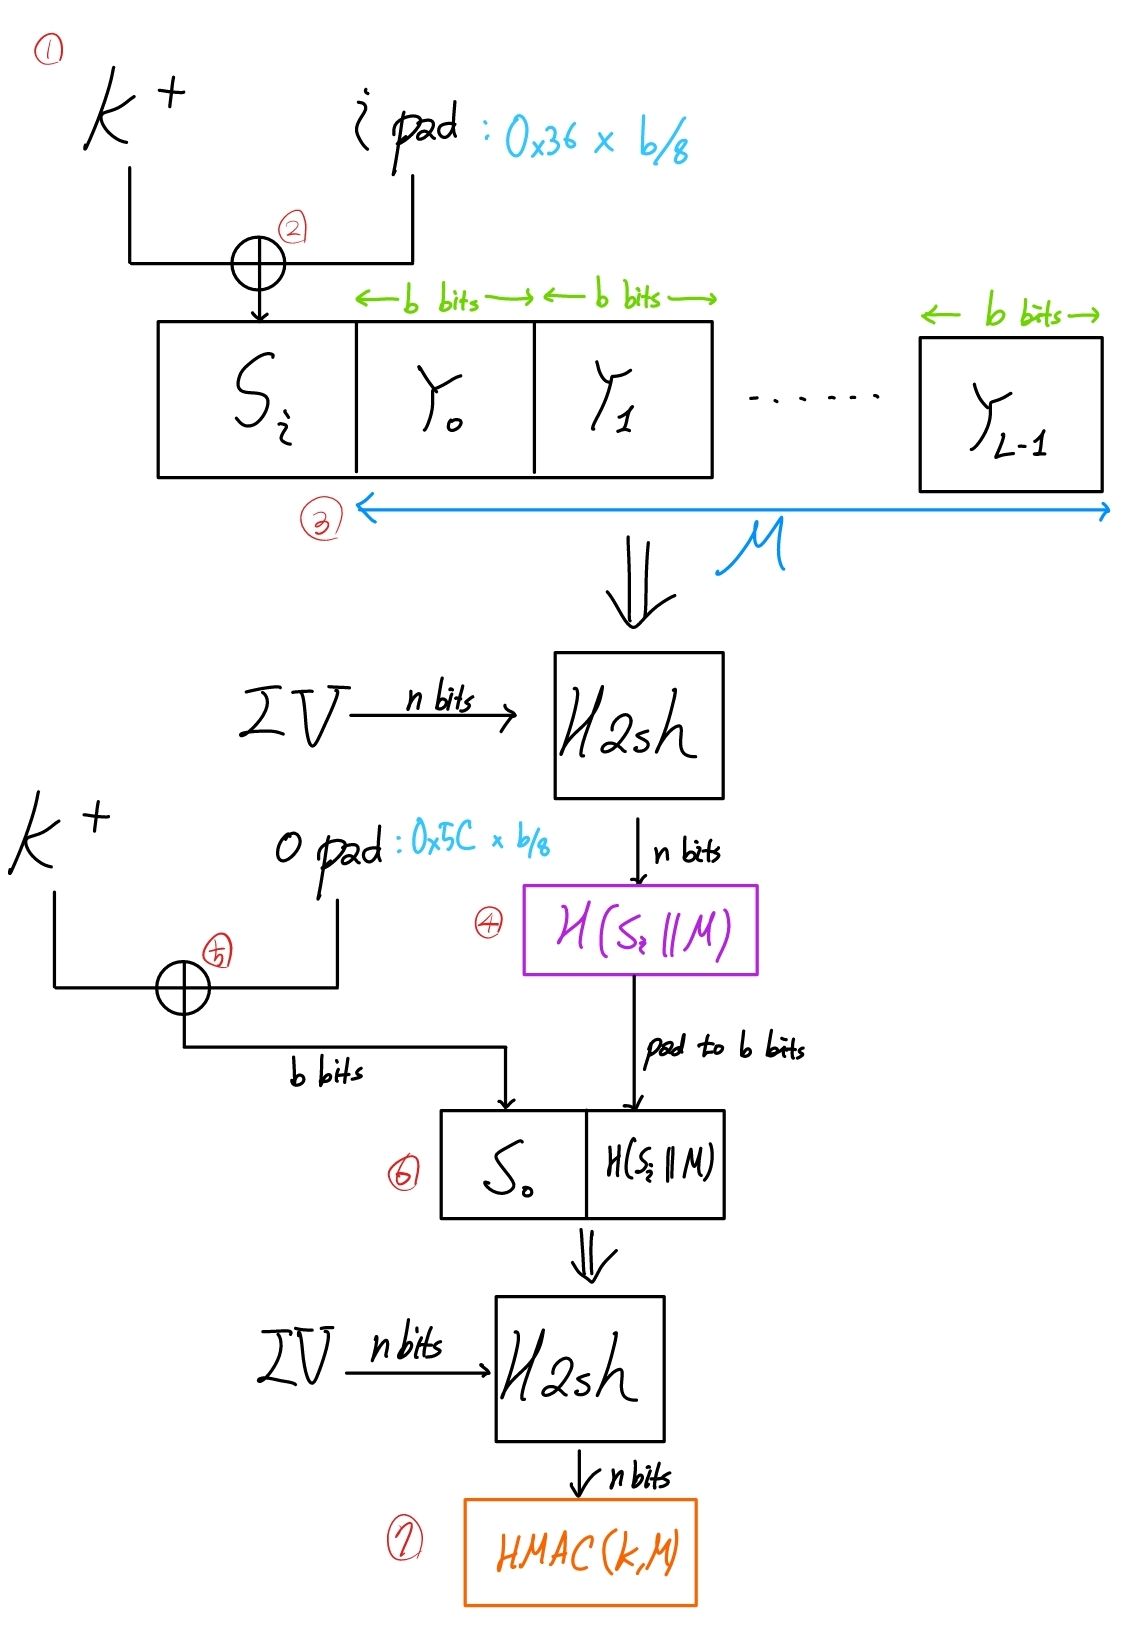 ①
K+
i pad : 0x36 x b/8
②
b bits
b bits
b bits
Si
Y0
Y1
......
YL-1
③
M
IV
n bits
Hash
K+
o pad : 0x5C x b/8
n bits
④
H(Si || M)
⑤
pad to b bits
b bits
⑥
So
H(Si || M)
IV
n bits
Hash
n bits
⑦
HMAC(K,M)